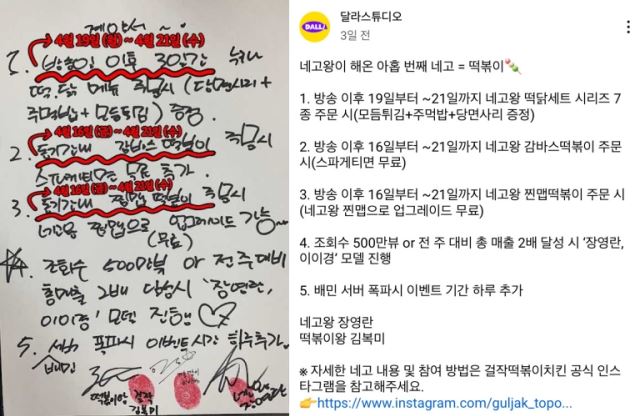 계약서
4월 19일 (월) ~ 4월 21일 (수)
1. 방송일 이후 3일간 누구나
떡.닭 메뉴 주문시 (당면사리+
주먹밥+모듬튀김) 증정
4월 16일 (금) ~ 4월 21일 (수)
2. 동기간내 감바스 떡볶이 주문시
스파게티면 무료 추가
4월 16일 (금) ~ 4월 21일 (수)
3. 동기간내 찐맵 떡볶이 주문시
네고왕 찐맵으로 업그레이드 가능
(무료)
조회수 500만뷰 or 전주대비
총매출 2배 달성시 '장영란,
이이경' 모델 진행
5. 서버 폭파시 이벤트시간 하루추가
배민
떡볶이왕 김복미
달라스튜디오
3일 전
네고왕이 해온 아홉 번째 네고 = 떡볶이🍡
1. 방송 이후 19일부터 ~21일까지 네고왕 떡닭세트 시리즈 7
종 주문 시(모듬튀김+주먹밥+당면사리 증정)
2. 방송 이후 16일부터 ~21일까지 네고왕 감바스떡볶이 주문
시(스파게티면 무료)
3. 방송 이후 16일부터 ~21일까지 네고왕 찐맵떡볶이 주문 시
(네고왕 찐맵으로 업그레이드 무료)
4. 조회수 500만뷰 or 전 주 대비 총 매출 2배 달성 시 '장영란,
이이경' 모델 진행
5. 배민 서버 폭파시 이벤트 기간 하루 추가
네고왕 장영란
떡볶이왕 김복미
※ 자세한 네고 내용 및 참여 방법은 걸작떡볶이치킨 공식 인스
타그램을 참고해주세요.
👉https://www.instagram.com/guljak_topo...